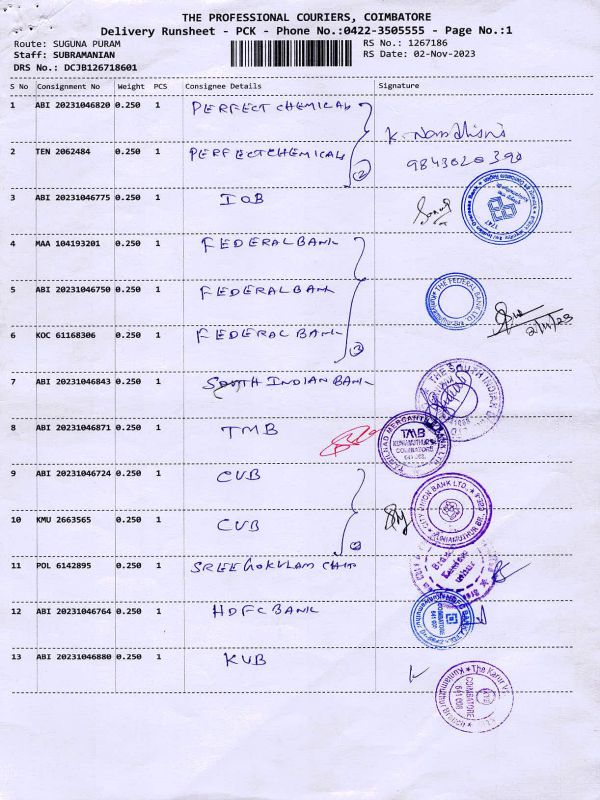 THE PROFESSIONAL COURIERS, COIMBATORE
Delivery Runsheet - PCK - Phone No.:0422-3505555 - Page No.:1
Route: SUGUNA PURAM
RS No.: 1267186
Staff: SUBRAMANIAN
RS Date: 02-Nov-2023
DRS No.: DCJB126718601
S No Consignment No Weight PCS Consignee Details Signature
1 ABI 20231046820 0.250 1 PERFECT CHEMICAL
2 TEN 2062484 0.250 1 PERFECT CHEMICAL 2
9843020390
3 ABI 20231046775 0.250 1 IOB
4 MAA 104193201 0.250 1 FEDERAL BANK
5 ABI 20231046750 0.250 1 FEDERAL BANK
THE FEDERAL BANK LTD.
6 KOC 61168306 0.250 1 FEDERAL BANK 3
2/11/23
7 ABI 20231046843 0.250 1 SOUTH INDIAN BANK
THE SOUTH INDIAN
8 ABI 20231046871 0.250 1 TMB
TMB
COIMBATORE
9 ABI 20231046724 0.250 1 CUB
CITY UNION BANK LTD.
10 KMU 2663565 0.250 1 CUB 2
11 POL 6142895 0.250 1 SREE GOKULAM CHIT
12 ABI 20231046764 0.250 1 HDFC BANK
COIMBATORE
13 ABI 20231046880 0.250 1 KVB
The Karur
COIMBATORE
641 008